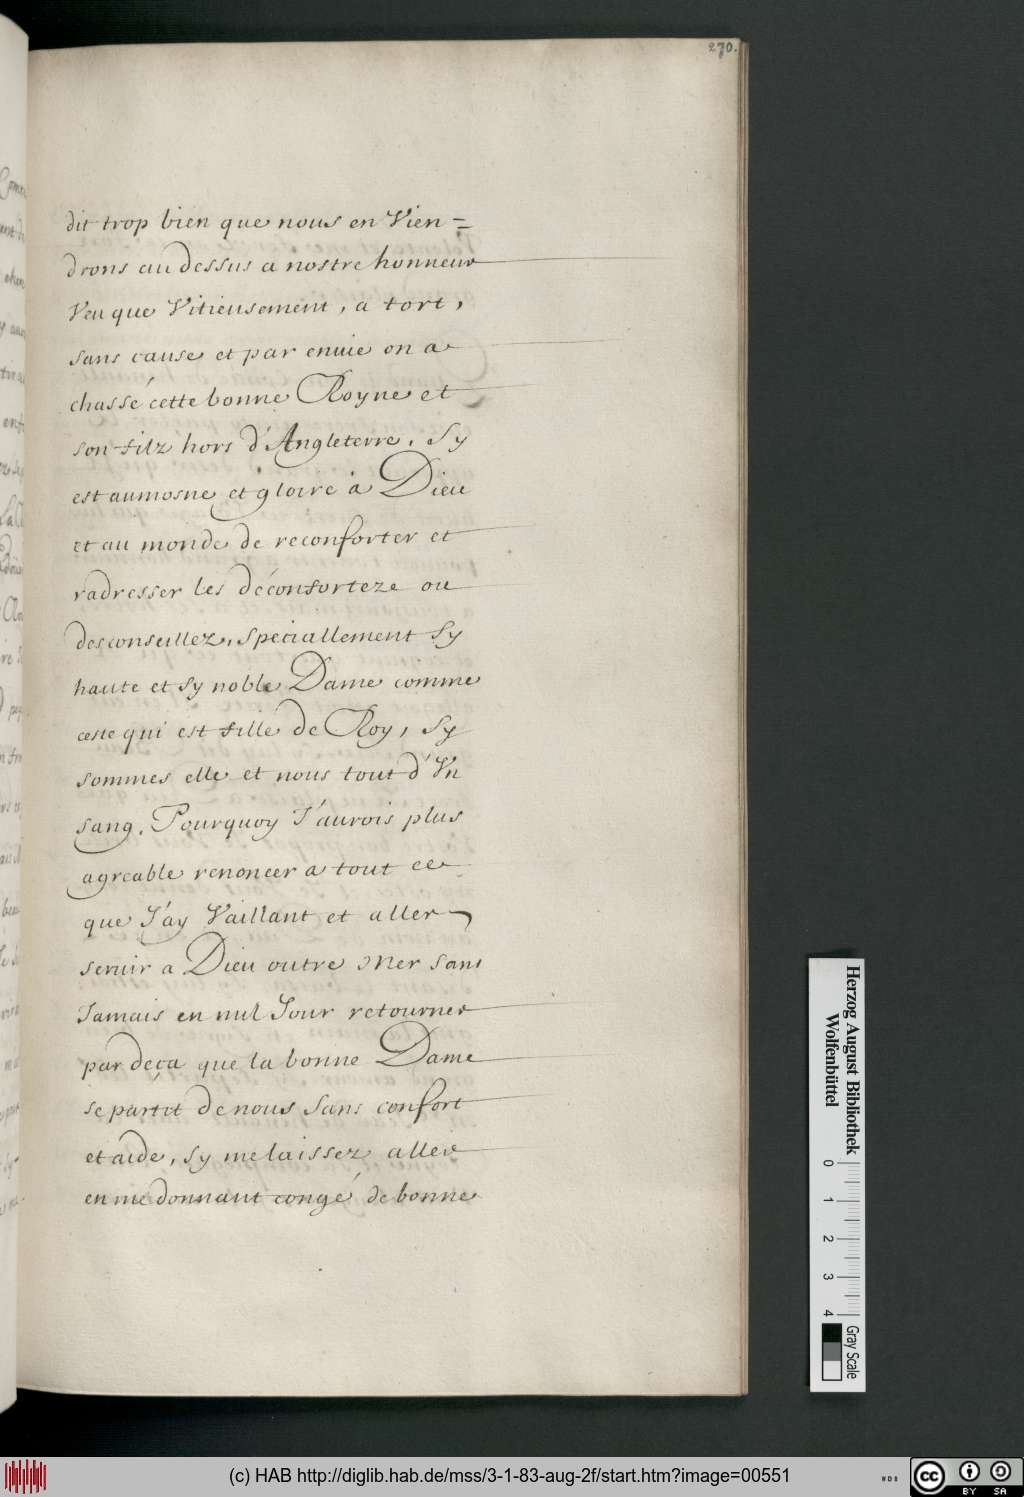 270.
dit trop bien que nous en Vien=
drons au dessus a nostre honneur
Veu que Vitieusement, a tort,
sans cause et par envie on a
chassé cette bonne Royne et
son filz hors d'Angleterre. Sy
est aumosne et gloire à Dieu
et au monde de reconforter et
radresser les déconforteze ou
desconseillez, speciallement sy
haute et sy noble Dame comme
ceste qui est fille de Roy, sy
sommes elle et nous tout d'Vn
sang. Pourquoy J'aurois plus
agreable renoncer a tout ce
que J'ay Vaillant et aller
seruir a Dieu outre Mer sans
Jamais en nul Jour retourner
par deça que la bonne Dame
se partit de nous sans confort
et aide, sy me laissez aller
en me donnant congé de bonne
Herzog August Bibliothek
Wolfenbüttel
0 1 2 3 4
Gray Scale
(c) HAB http://diglib.hab.de/mss/3-1-83-aug-2f/start.htm?image=00551
WDB
cc BY SA